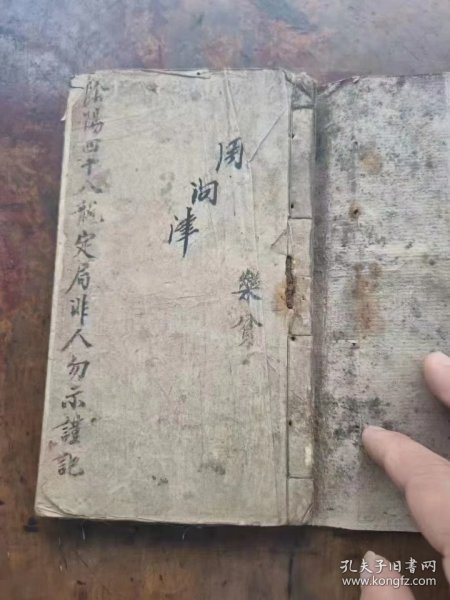 周津
樂
陰陽四十八龍定局非人勿示謹記
孔夫子旧书网
www.kongfz.com